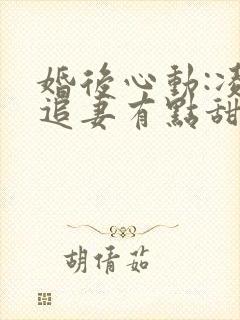 婚後心動:凌
追妻有點甜
胡倩茹